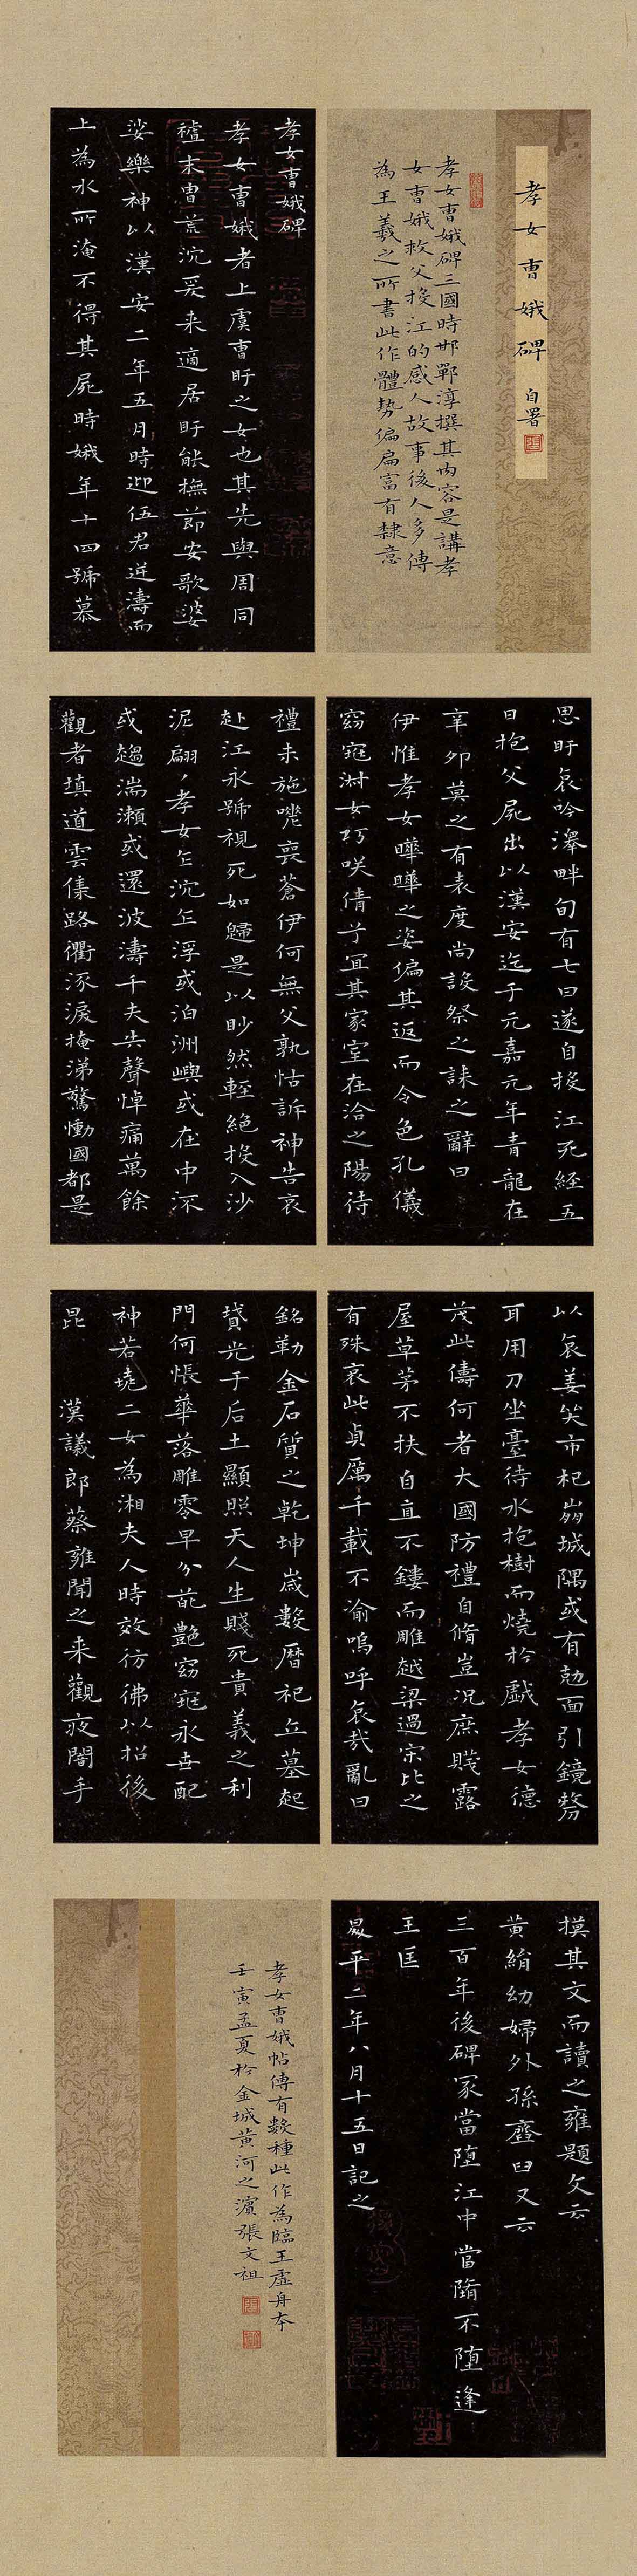 孝女曹娥碑 自署
孝女曹娥碑三國時邯鄲淳撰其內容是講孝
女曹娥救父投江的感人故事後人多傳
為王羲之所書此作體勢偏扁富有隸意
孝女曹娥碑
孝女曹娥者上虞曹盱之女也其先與周同
祖末曹荒沉爰来適居盱能撫節安歌婆
娑樂神以漢安二年五月時迎伍君逆濤而
上為水所淹不得其屍時娥年十四號慕
思盱哀吟澤畔旬有七日遂自投江死経五
日抱父屍出以漢安迄于元嘉元年青龍在
辛卯莫之有表度尚設祭之誄之辭曰
伊惟孝女曄曄之姿偏其返而令色孔儀
窈窕淑女巧咲倩兮宜其家室在洽之陽待
禮未施嗟喪蒼伊何無父孰怙訴神告哀
赴江永號視死如歸是以眇然輕絕投入沙
泥翩丶孝女乍沉乍浮或泊洲嶼或在中流
或趨湍瀬或還波濤千夫失聲悼痛萬餘
觀者填道雲集路衢泳淚掩涕驚慟國都是
以哀姜哭市杞崩城隅或有剋面引鏡剺
耳用刀坐臺待水抱樹而燒於戲孝女德
茂此儔何者大國防禮自脩豈況庶賤露
屋草茅不扶自直不鏤而雕越梁過宋比之
有殊哀此貞厲千載不渝嗚呼哀哉亂曰
銘勒金石質之乾坤歲數曆祀丘墓起
墳光于后土顯照天人生賤死貴義之利
門何悵華落雕零早分葩艷窈窕永世配
神若堯二女為湘夫人時效彷彿以招後
昆　漢議郎蔡雍聞之来觀夜闇手
摸其文而讀之雍題文云
黃絹幼婦外孫齏臼又云
三百年後碑冢當墮江中當墮不墮逢
王匡
昇平二年八月十五日記之
孝女曹娥帖傳有數種此作為臨王虛舟本
壬寅孟夏於金城黃河之濱張文祖